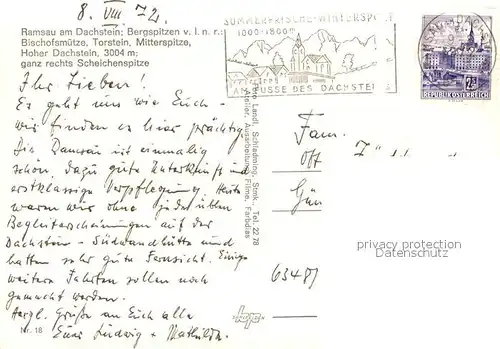 8. VIII 72.
Ramsau am Dachstein; Bergspitzen v. l. n. r.:
Bischofsmütze, Torstein, Mitterspitze,
Hoher Dachstein, 3004 m;
ganz rechts Scheichenspitze
SOMMERFRISCHE-WINTERSPORT
1000-1800m
AM FUSSE DES DACHSTEINS
REPUBLIK ÖSTERREICH
Ihr Lieben!
Es geht uns wie Euch –
wir finden es hier prächtig.
Die Ramsau ist einmalig
schön. Dazu gute Unterkunft und
erstklassige Verpflegung. Heute
waren wir ohne jede üblen
Begleiterscheinungen auf der
Dachstein – Südwandhütte und
hatten sehr gute Fernsicht. Einige
weitere Fahrten sollen noch
gemacht werden.
Herzl. Grüße an Euch alle
Eure Ludwig + Mathilde.
Nr. 18
Foto Landl, Schladming, Stmk., Tel. 22 78
Atelier, Ausarbeitung, Filme, Farbdias
Fam.
Off
Gün
6348
privacy protection
Datenschutz